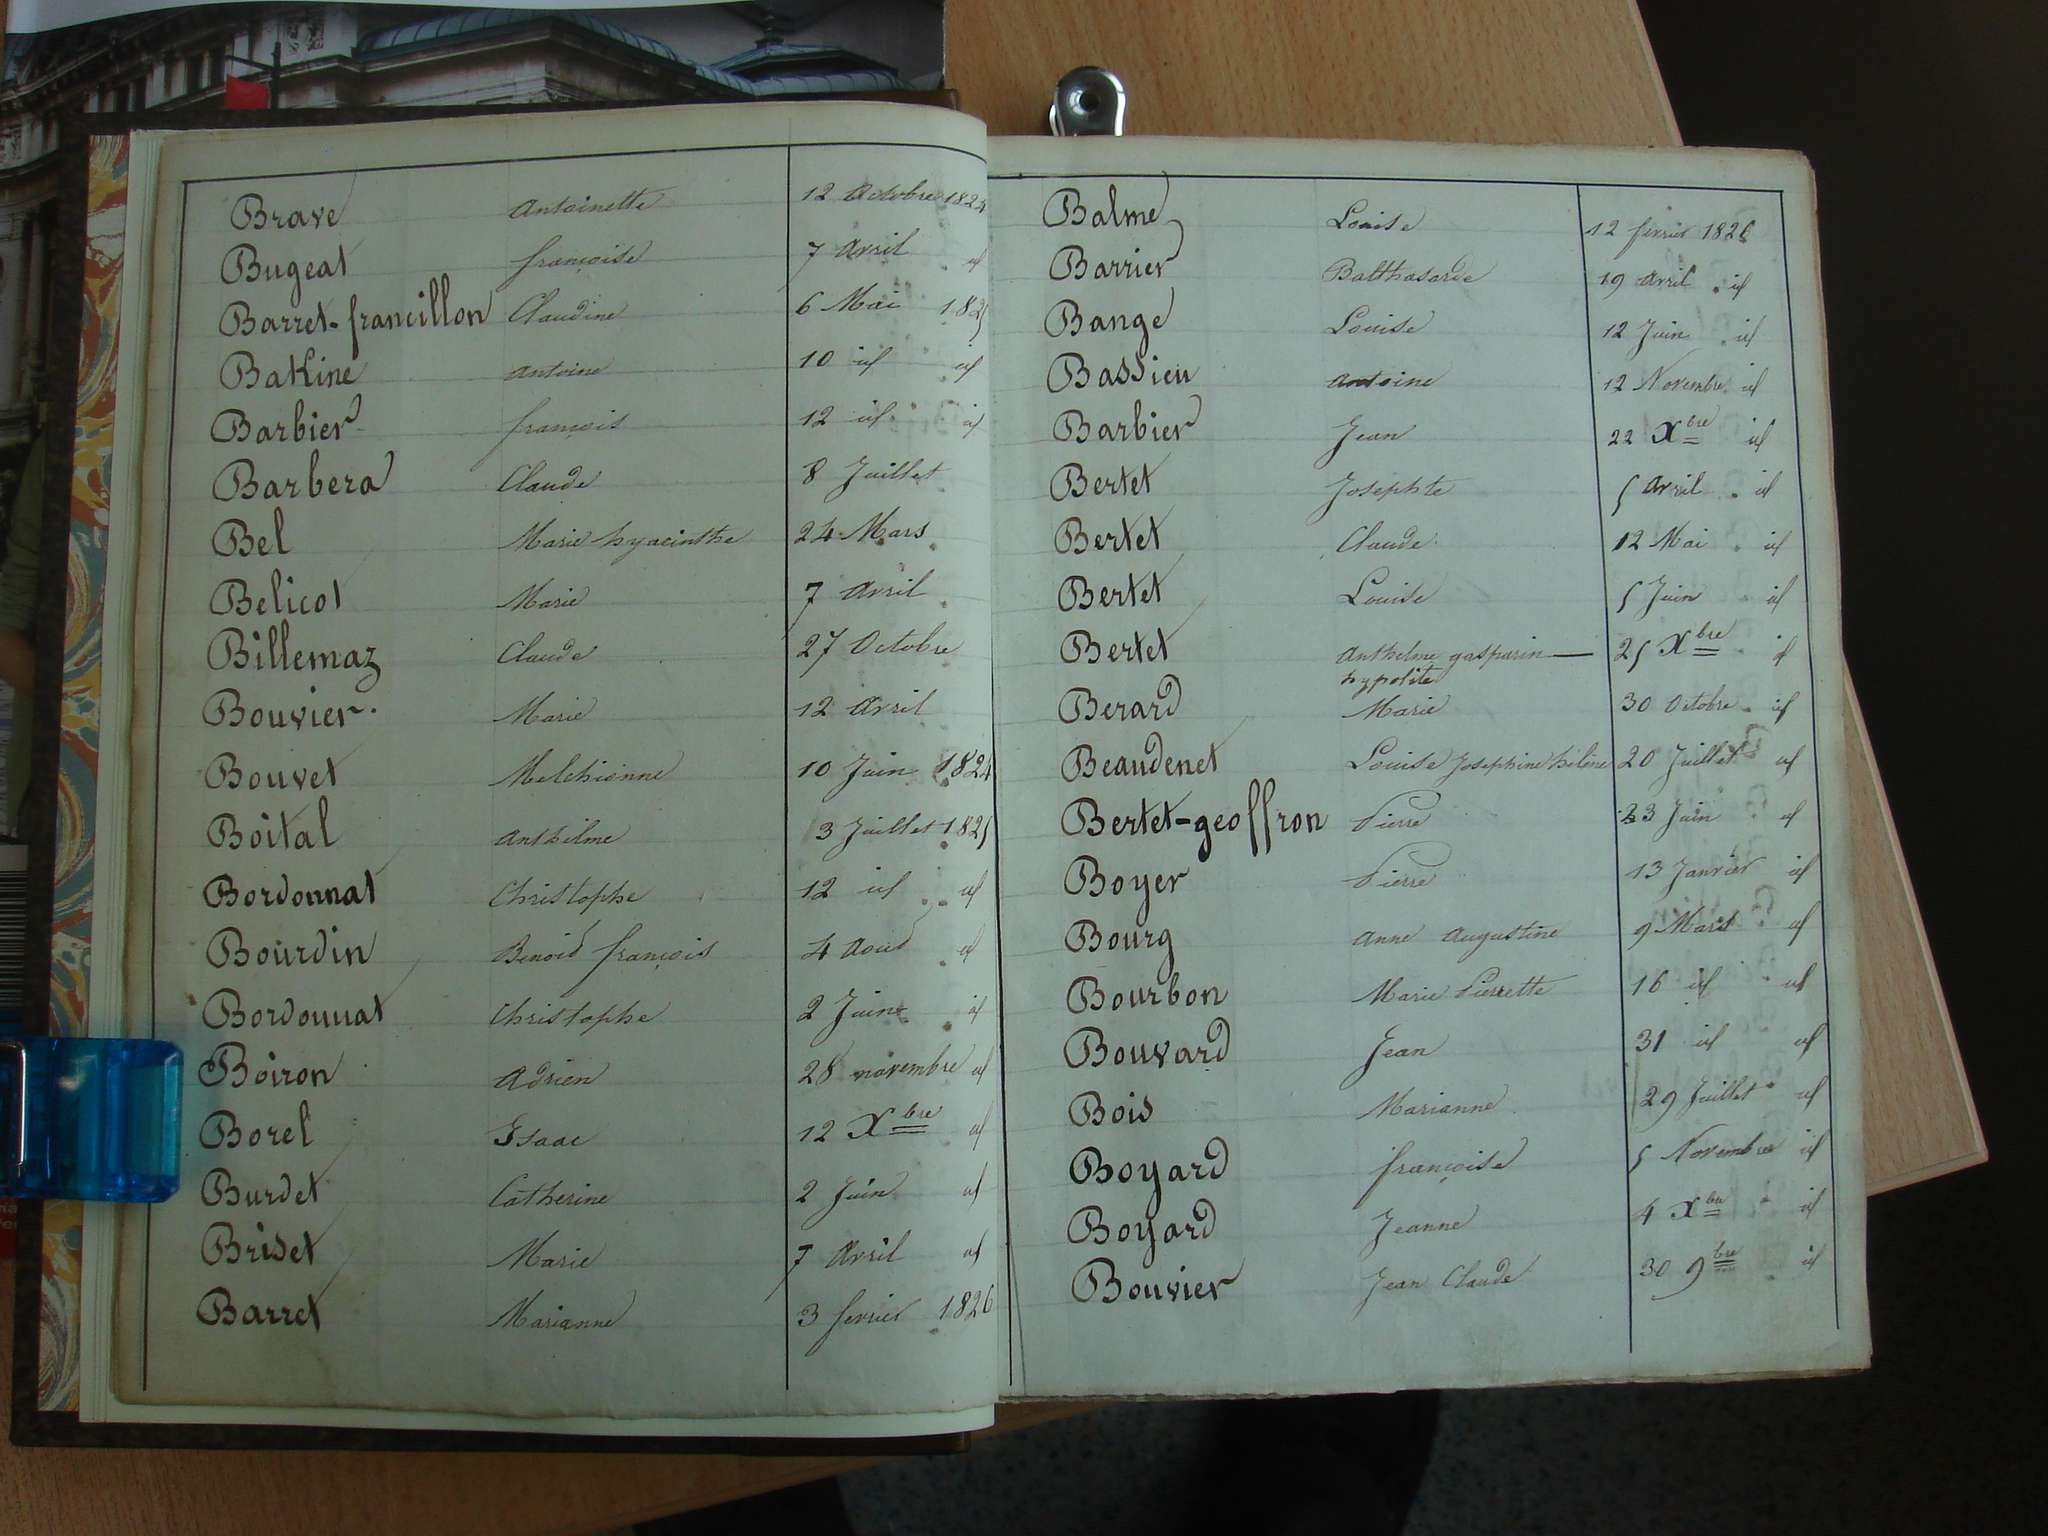 Brave Antoinette 12 Octobre 1824
Bugeat françoise 7 Avril id
Barret-francillon Claudine 6 Mai 1825
Bakine Antoine 10 id id
Barbier françois 12 id id
Barbera Claude 8 Juillet
Bel Marie hyacinthe 24 Mars
Belicot Marie 7 Avril
Billemaz Claude 27 Octobre
Bouvier Marie 12 Avril
Bouvet Melchionne 10 Juin 1824
Boital Anthelme 3 Juillet 1825
Bordonnat Christophe 12 id id
Bourdin Benoid françois 4 Aoud id
Bordonnat Christophe 2 Juin id
Boiron Adrien 28 novembre id
Borel Isaac 12 Xbre id
Burdet Catherine 2 Juin id
Briset Marie 7 Avril id
Barret Marianne 3 fevrier 1826
Balme Louise 12 fevrier 1826
Barrier Balthasarde 19 Avril id
Bange Louise 12 Juin id
Bassieu Antoine 12 Novembre id
Barbier Jean 22 Xbre id
Bertet Josephte 5 Avril id
Bertet Claude 12 Mai id
Bertet Louise 5 Juin id
Bertet Anthelme gasparin 25 Xbre id
hypolite
Berard Marie 30 Octobre id
Beaudenet Louise Josephine hélène 20 Juillet id
Bertet-geoffron Pierre 23 Juin id
Boyer Pierre 13 Janvier id
Bourg Anne Augustine 9 Mars id
Bourbon Marie Pierrette 16 id id
Bouvard Jean 31 id id
Bois Marianne 29 Juillet id
Boyard françoise 5 Novembre id
Boyard Jeanne 4 Xbre id
Bouvier Jean Claude 30 9bre id